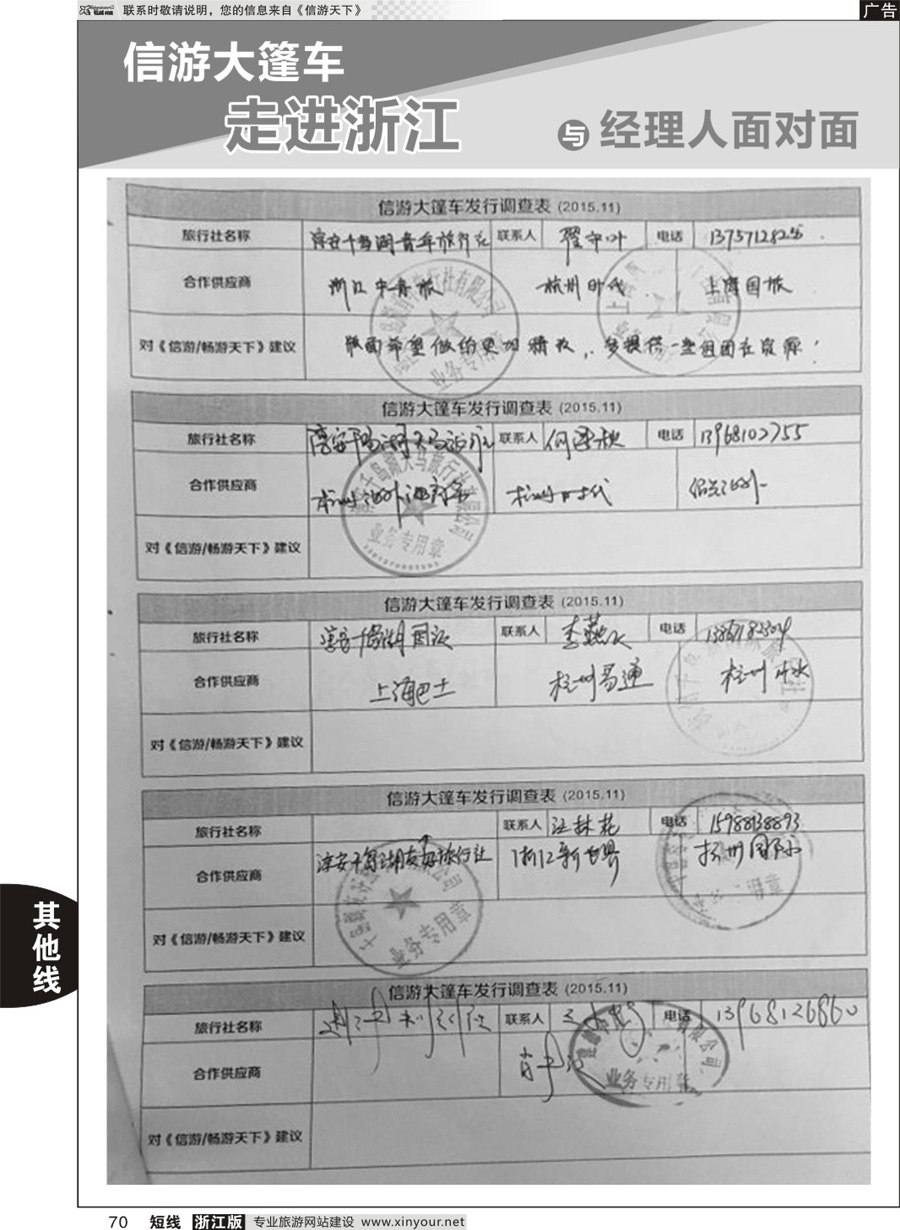 联系时敬请说明，您的信息来自《信游天下》
广告
信游大篷车
走进浙江
与 经理人面对面
信游大篷车发行调查表 (2015.11)
旅行社名称 淳安千岛湖青年旅行社 联系人 电话
合作供应商 浙江中青旅 杭州时代 上海国旅
对《信游/畅游天下》建议 版面希望做的更加精致，多提供一些组团社资源！
信游大篷车发行调查表 (2015.11)
旅行社名称 联系人 电话 13968102755
合作供应商 杭州时代
业务专用章
对《信游/畅游天下》建议
信游大篷车发行调查表 (2015.11)
旅行社名称 联系人 李燕 电话
合作供应商 上海巴士 杭州易通 杭州
对《信游/畅游天下》建议
信游大篷车发行调查表 (2015.11)
旅行社名称 联系人 汪林花 电话 15988138893
合作供应商 淳安千岛湖友好旅行社 浙江新世界 杭州
对《信游/畅游天下》建议
业务专用章
信游大篷车发行调查表 (2015.11)
旅行社名称 联系人 电话 13968126860
合作供应商
业务专用章
对《信游/畅游天下》建议
其他线
70 短线 浙江版 专业旅游网站建设 www.xinyour.net